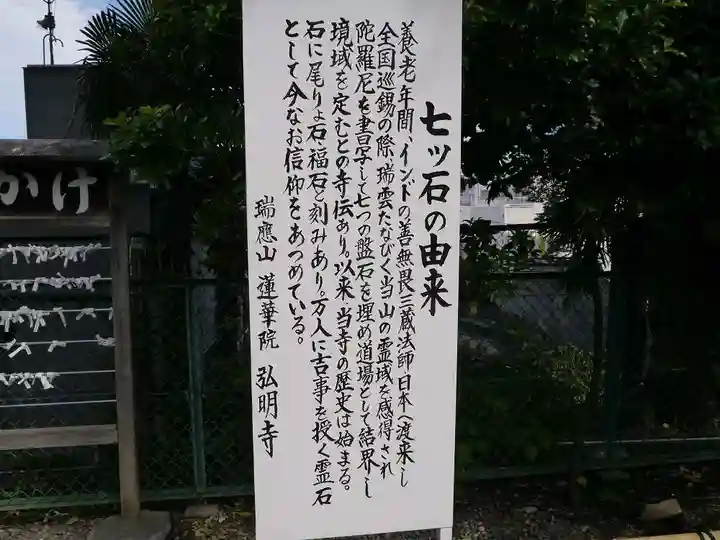 七ッ石の由来
養老年間、インドの善無畏三蔵法師日本へ渡来し
全国巡錫の際、瑞雲たなびく当山の霊域を感得され
陀羅尼を書写して七つの盤石を埋め道場として結界し
境域を定むとの寺伝あり。以来、当寺の歴史は始まる。
石に尾りょ石、福石と刻みあり。万人に吉事を授く霊石
として今なお信仰をあつめている。
瑞應山 蓮華院 弘明寺
かけ